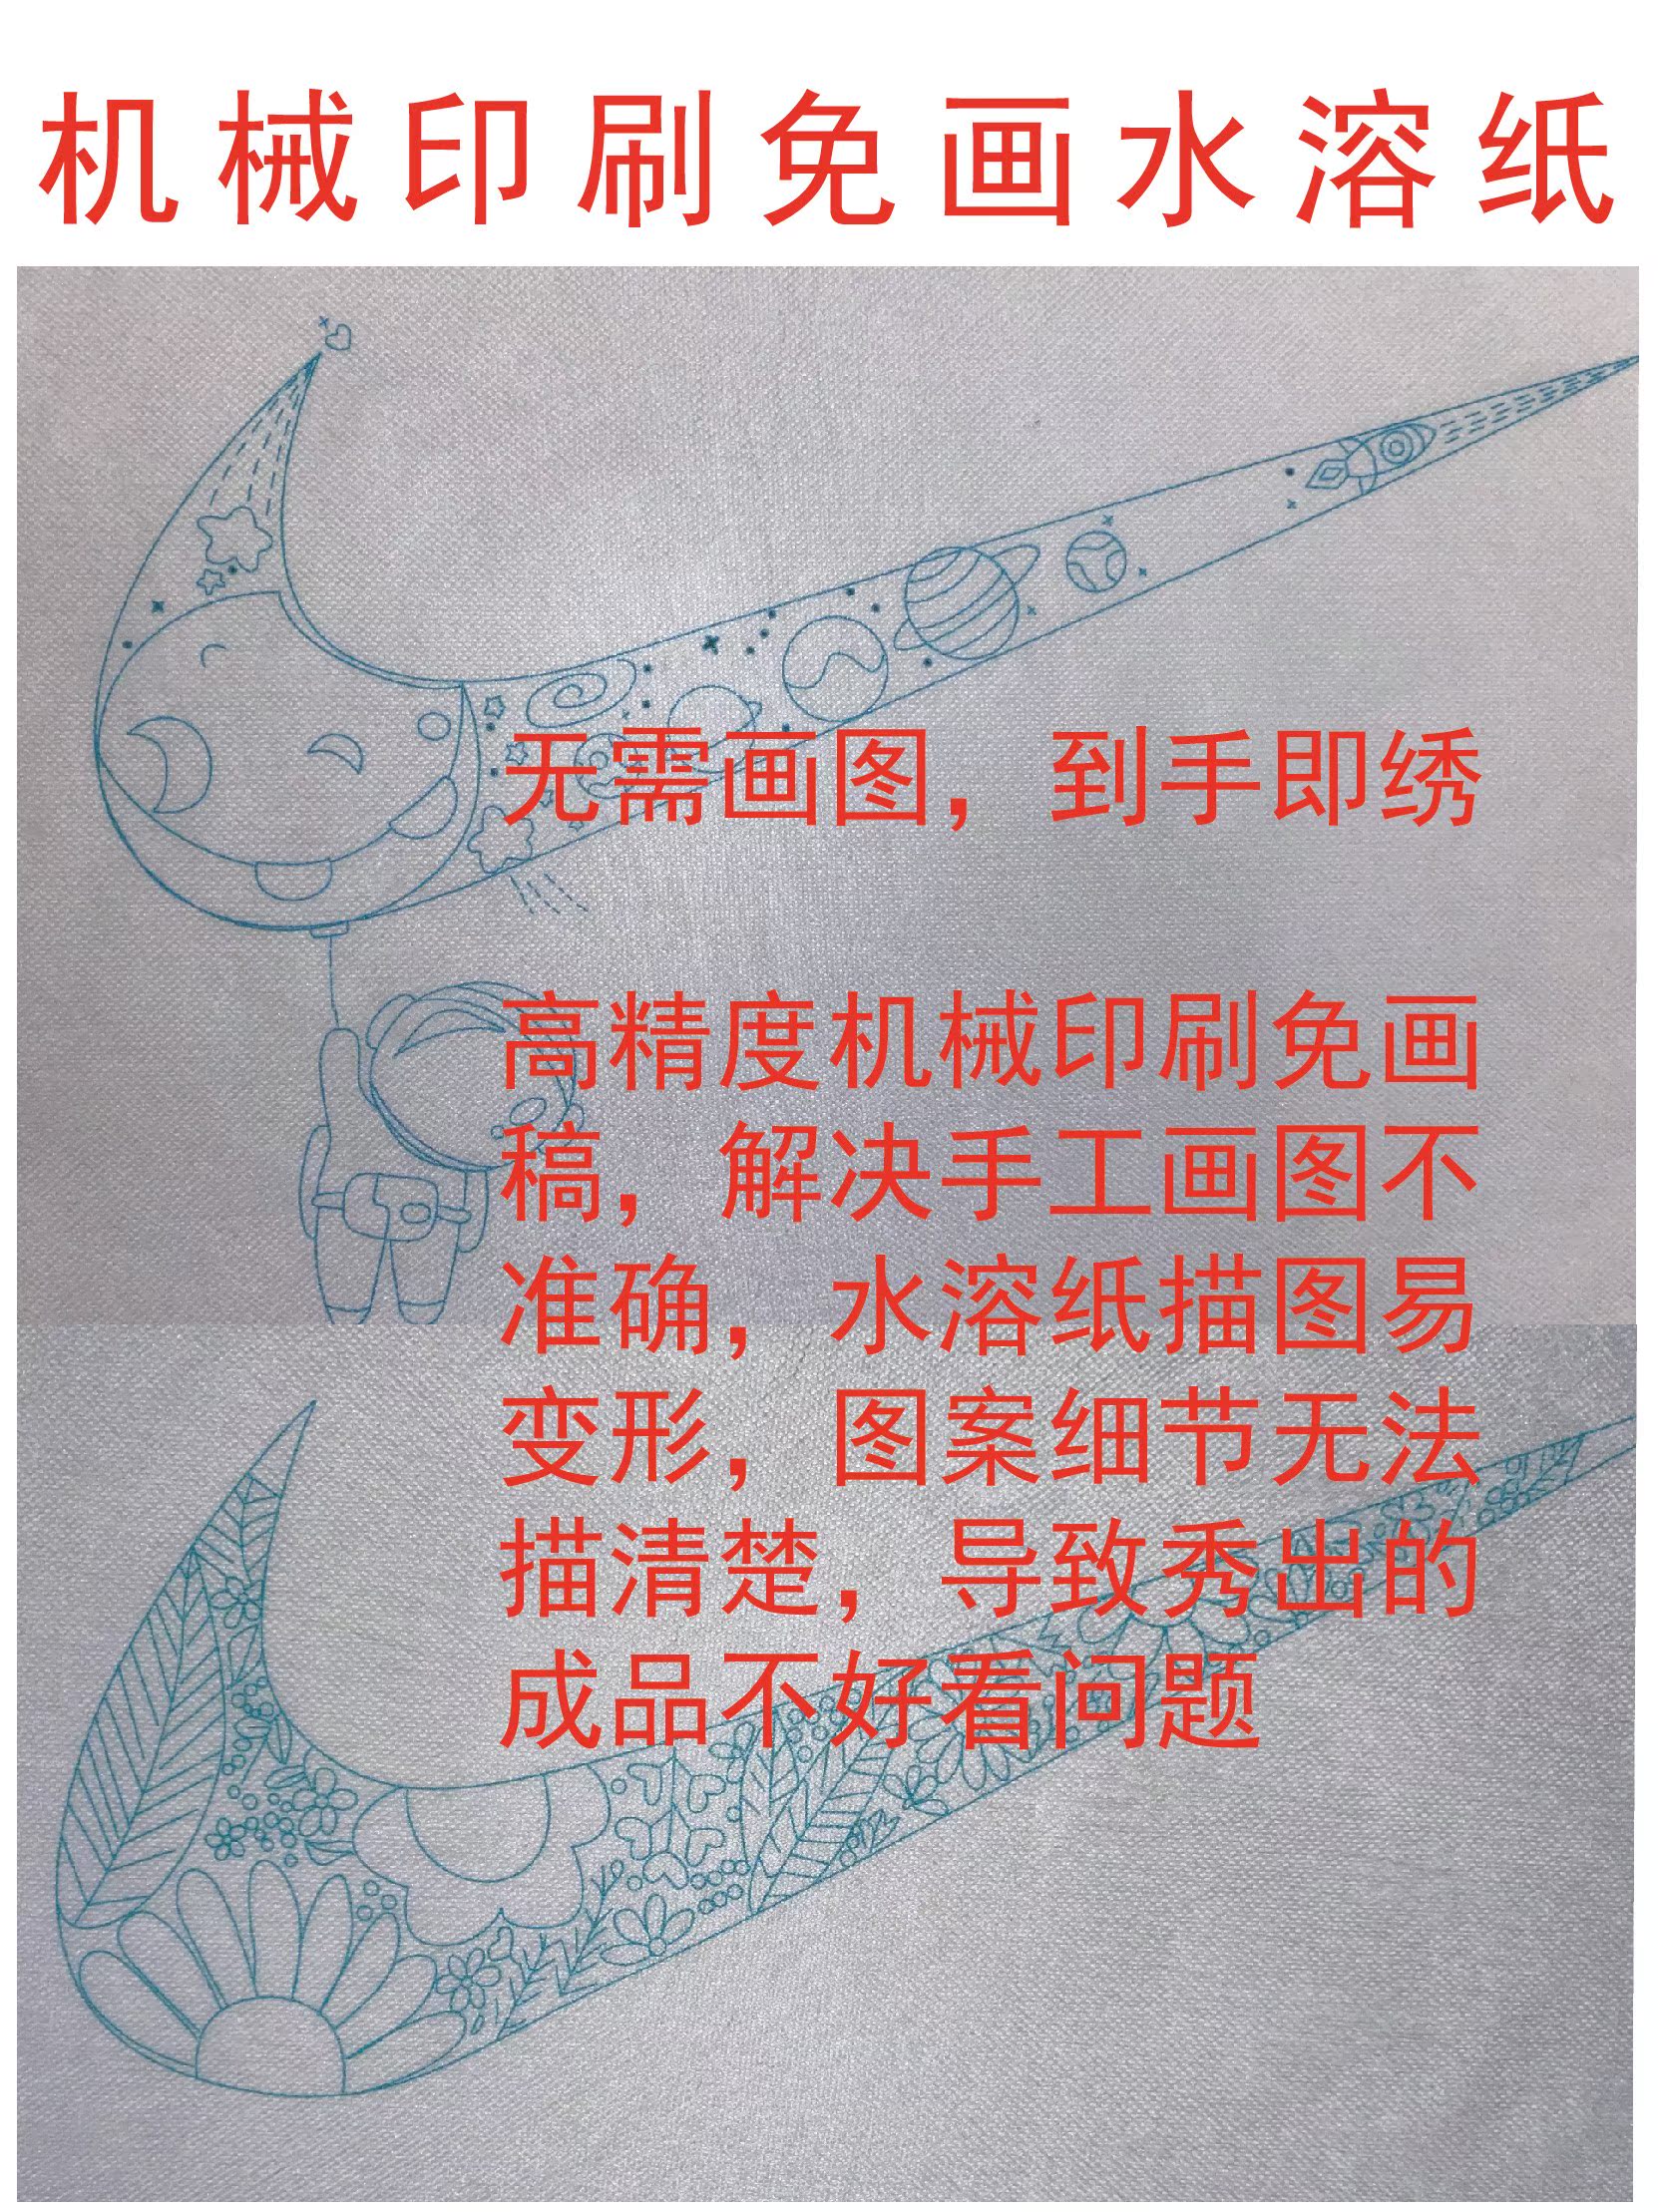 机械印刷免画水溶纸
无需画图，到手即绣
高精度机械印刷免画
稿，解决手工画图不
准确，水溶纸描图易
变形，图案细节无法
描清楚，导致秀出的
成品不好看问题